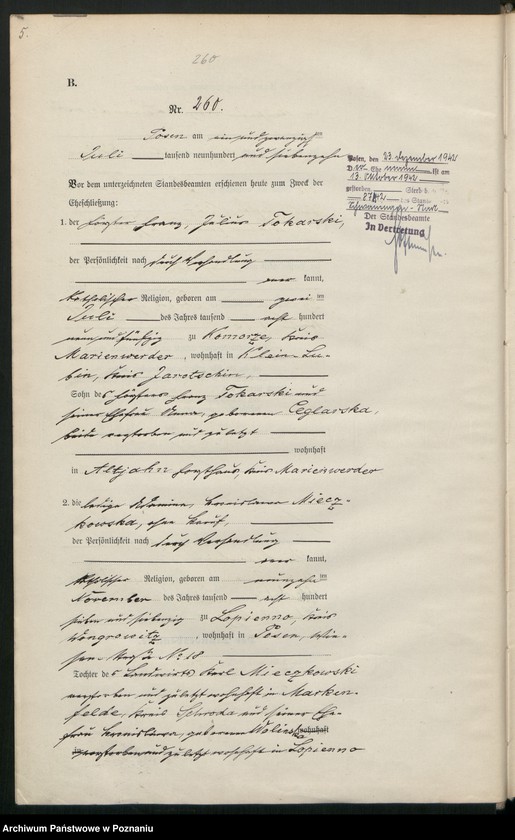 5.
260
B.
Nr. 260.
Posen am einundzwanzigsten
Juli tausend neunhundert und siebenzehn
Vor dem unterzeichneten Standesbeamten erschienen heute zum Zweck der
Eheschließung:
1. der Förster Franz, Julius Tokarski,
der Persönlichkeit nach durch Verhandlung
kannt,
katholischer Religion, geboren am zwei ten
Juli des Jahres tausend acht hundert
neunundfünfzig zu Komorze, Kreis
Marienwerder, wohnhaft in Klein Lu-
bin, Kreis Jarotschin,
Sohn des Försters Franz Tokarski und
seiner Ehefrau Anna, geborenen Ceglarska,
beide verstorben und zuletzt
wohnhaft
in Altjahn Forsthaus, Kreis Marienwerder
2. die ledige Bronislawa Miecz-
kowska, ohne Beruf,
der Persönlichkeit nach durch Verhandlung
kannt,
katholischer Religion, geboren am neunzehn ten
November des Jahres tausend acht hundert
sieben und siebenzig zu Lopienno, Kreis
Wongrowitz, wohnhaft in Posen, Wie-
sen Straße No 18
Tochter des Landwirts Karl Mieczkowski
verstorben und zuletzt wohnhaft in Marken-
felde, Kreis Schroda und seiner Ehe-
frau Bronislawa, geborenen Wolinska wohnhaft
verstorben und zuletzt wohnhaft in Lopienno
Posen, den 23. Dezember 1942
ist am
13. Oktober 1942
gestorben
Der Standesbeamte
In Vertretung
Archiwum Państwowe w Poznaniu